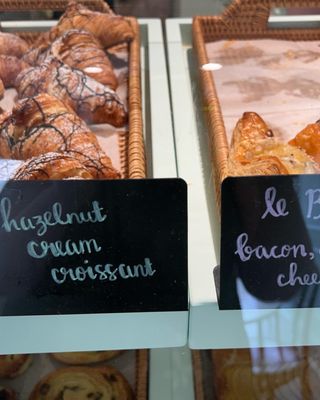 hazelnut
cream
croissant
le B
bacon,
chee